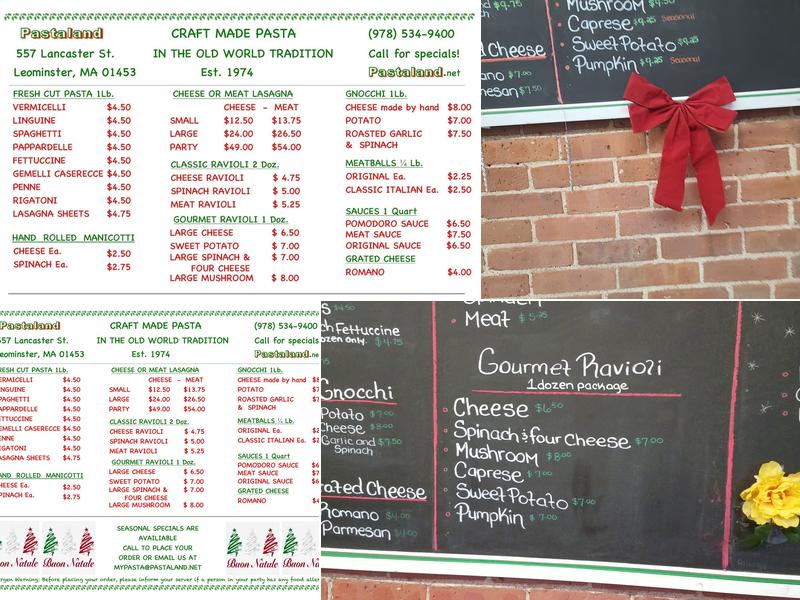 Pastaland
557 Lancaster St.
Leominster, MA 01453
CRAFT MADE PASTA
IN THE OLD WORLD TRADITION
Est. 1974
(978) 534-9400
Call for specials!
Pastaland.net
FRESH CUT PASTA 1Lb.
VERMICELLI $4.50
LINGUINE $4.50
SPAGHETTI $4.50
PAPPARDELLE $4.50
FETTUCCINE $4.50
GEMELLI CASERECCE $4.50
PENNE $4.50
RIGATONI $4.50
LASAGNA SHEETS $4.75
HAND ROLLED MANICOTTI
CHEESE Ea. $2.50
SPINACH Ea. $2.75
CHEESE OR MEAT LASAGNA
CHEESE - MEAT
SMALL $12.50 $13.75
LARGE $24.00 $26.50
PARTY $49.00 $54.00
CLASSIC RAVIOLI 2 Doz.
CHEESE RAVIOLI $ 4.75
SPINACH RAVIOLI $ 5.00
MEAT RAVIOLI $ 5.25
GOURMET RAVIOLI 1 Doz.
LARGE CHEESE $ 6.50
SWEET POTATO $ 7.00
LARGE SPINACH & $ 7.00
FOUR CHEESE
LARGE MUSHROOM $ 8.00
GNOCCHI 1Lb.
CHEESE made by hand $8.00
POTATO $7.00
ROASTED GARLIC $7.50
& SPINACH
MEATBALLS ¼ Lb.
ORIGINAL Ea. $2.25
CLASSIC ITALIAN Ea. $2.50
SAUCES 1 Quart
POMODORO SAUCE $6.50
MEAT SAUCE $7.50
ORIGINAL SAUCE $6.50
GRATED CHEESE
ROMANO $4.00
$4.75
d Cheese
ano $7.00
mesan $7.50
Mushroom $4.50
Caprese $9.25 Seasonal
Sweet Potato $9.25
Pumpkin $9.25 Seasonal
Pastaland
557 Lancaster St.
eominster, MA 01453
CRAFT MADE PASTA
IN THE OLD WORLD TRADITION
Est. 1974
(978) 534-9400
Call for specials
Pastaland.ne
RESH CUT PASTA 1Lb.
ERMICELLI $4.50
INGUINE $4.50
PAGHETTI $4.50
APPARDELLE $4.50
ETTUCCINE $4.50
EMELLI CASERECCE $4.50
ENNE $4.50
IGATONI $4.50
ASAGNA SHEETS $4.75
AND ROLLED MANICOTTI
HEESE Ea. $2.50
PINACH Ea. $2.75
CHEESE OR MEAT LASAGNA
CHEESE - MEAT
SMALL $12.50 $13.75
LARGE $24.00 $26.50
PARTY $49.00 $54.00
CLASSIC RAVIOLI 2 Doz.
CHEESE RAVIOLI $ 4.75
SPINACH RAVIOLI $ 5.00
MEAT RAVIOLI $ 5.25
GOURMET RAVIOLI 1 Doz.
LARGE CHEESE $ 6.50
SWEET POTATO $ 7.00
LARGE SPINACH & $ 7.00
FOUR CHEESE
LARGE MUSHROOM $ 8.00
GNOCCHI 1Lb.
CHEESE made by hand $8
POTATO $7
ROASTED GARLIC $7
& SPINACH
MEATBALLS ¼ Lb.
ORIGINAL Ea. $2
CLASSIC ITALIAN Ea. $2
SAUCES 1 Quart
POMODORO SAUCE $6
MEAT SAUCE $7
ORIGINAL SAUCE $6
GRATED CHEESE
ROMANO $4
Buon Natale Buon Natale
SEASONAL SPECIALS ARE
AVAILIABLE
CALL TO PLACE YOUR
ORDER OR EMAIL US AT
MYPASTA@PASTALAND.NET
Buon Natale Bu
rgen Warning: Before placing your order, please inform your server if a person in your party has any food aller
S $4.50
ch Fettuccine
ozen only. $4.75
Gnocchi
Potato $7.00
Cheese $8.00
Garlic and $7.50
Spinach
ated Cheese
Romano $4.00
Parmesan $4.00
Spinach
Meat $5.25
Gourmet Ravioli
1 dozen package
Cheese $6.50
Spinach & four Cheese $7.00
Mushroom $8.00
Caprese $7.00
Sweet Potato $7.00
Pumpkin $7.00